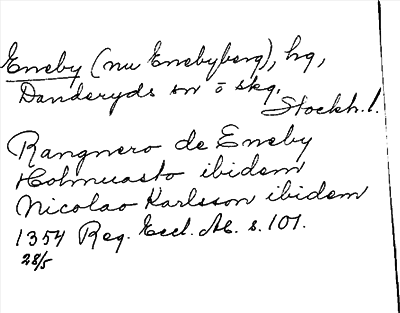 Eneby (nu Enebyberg), hg,
Danderyds sn o skg.
Stockh. l.
Rangnero de Eneby
Holmuasto ibidem
Nicolao Karlsson ibidem
1354 Reg. Eccl. Ab. s. 101.
28/5